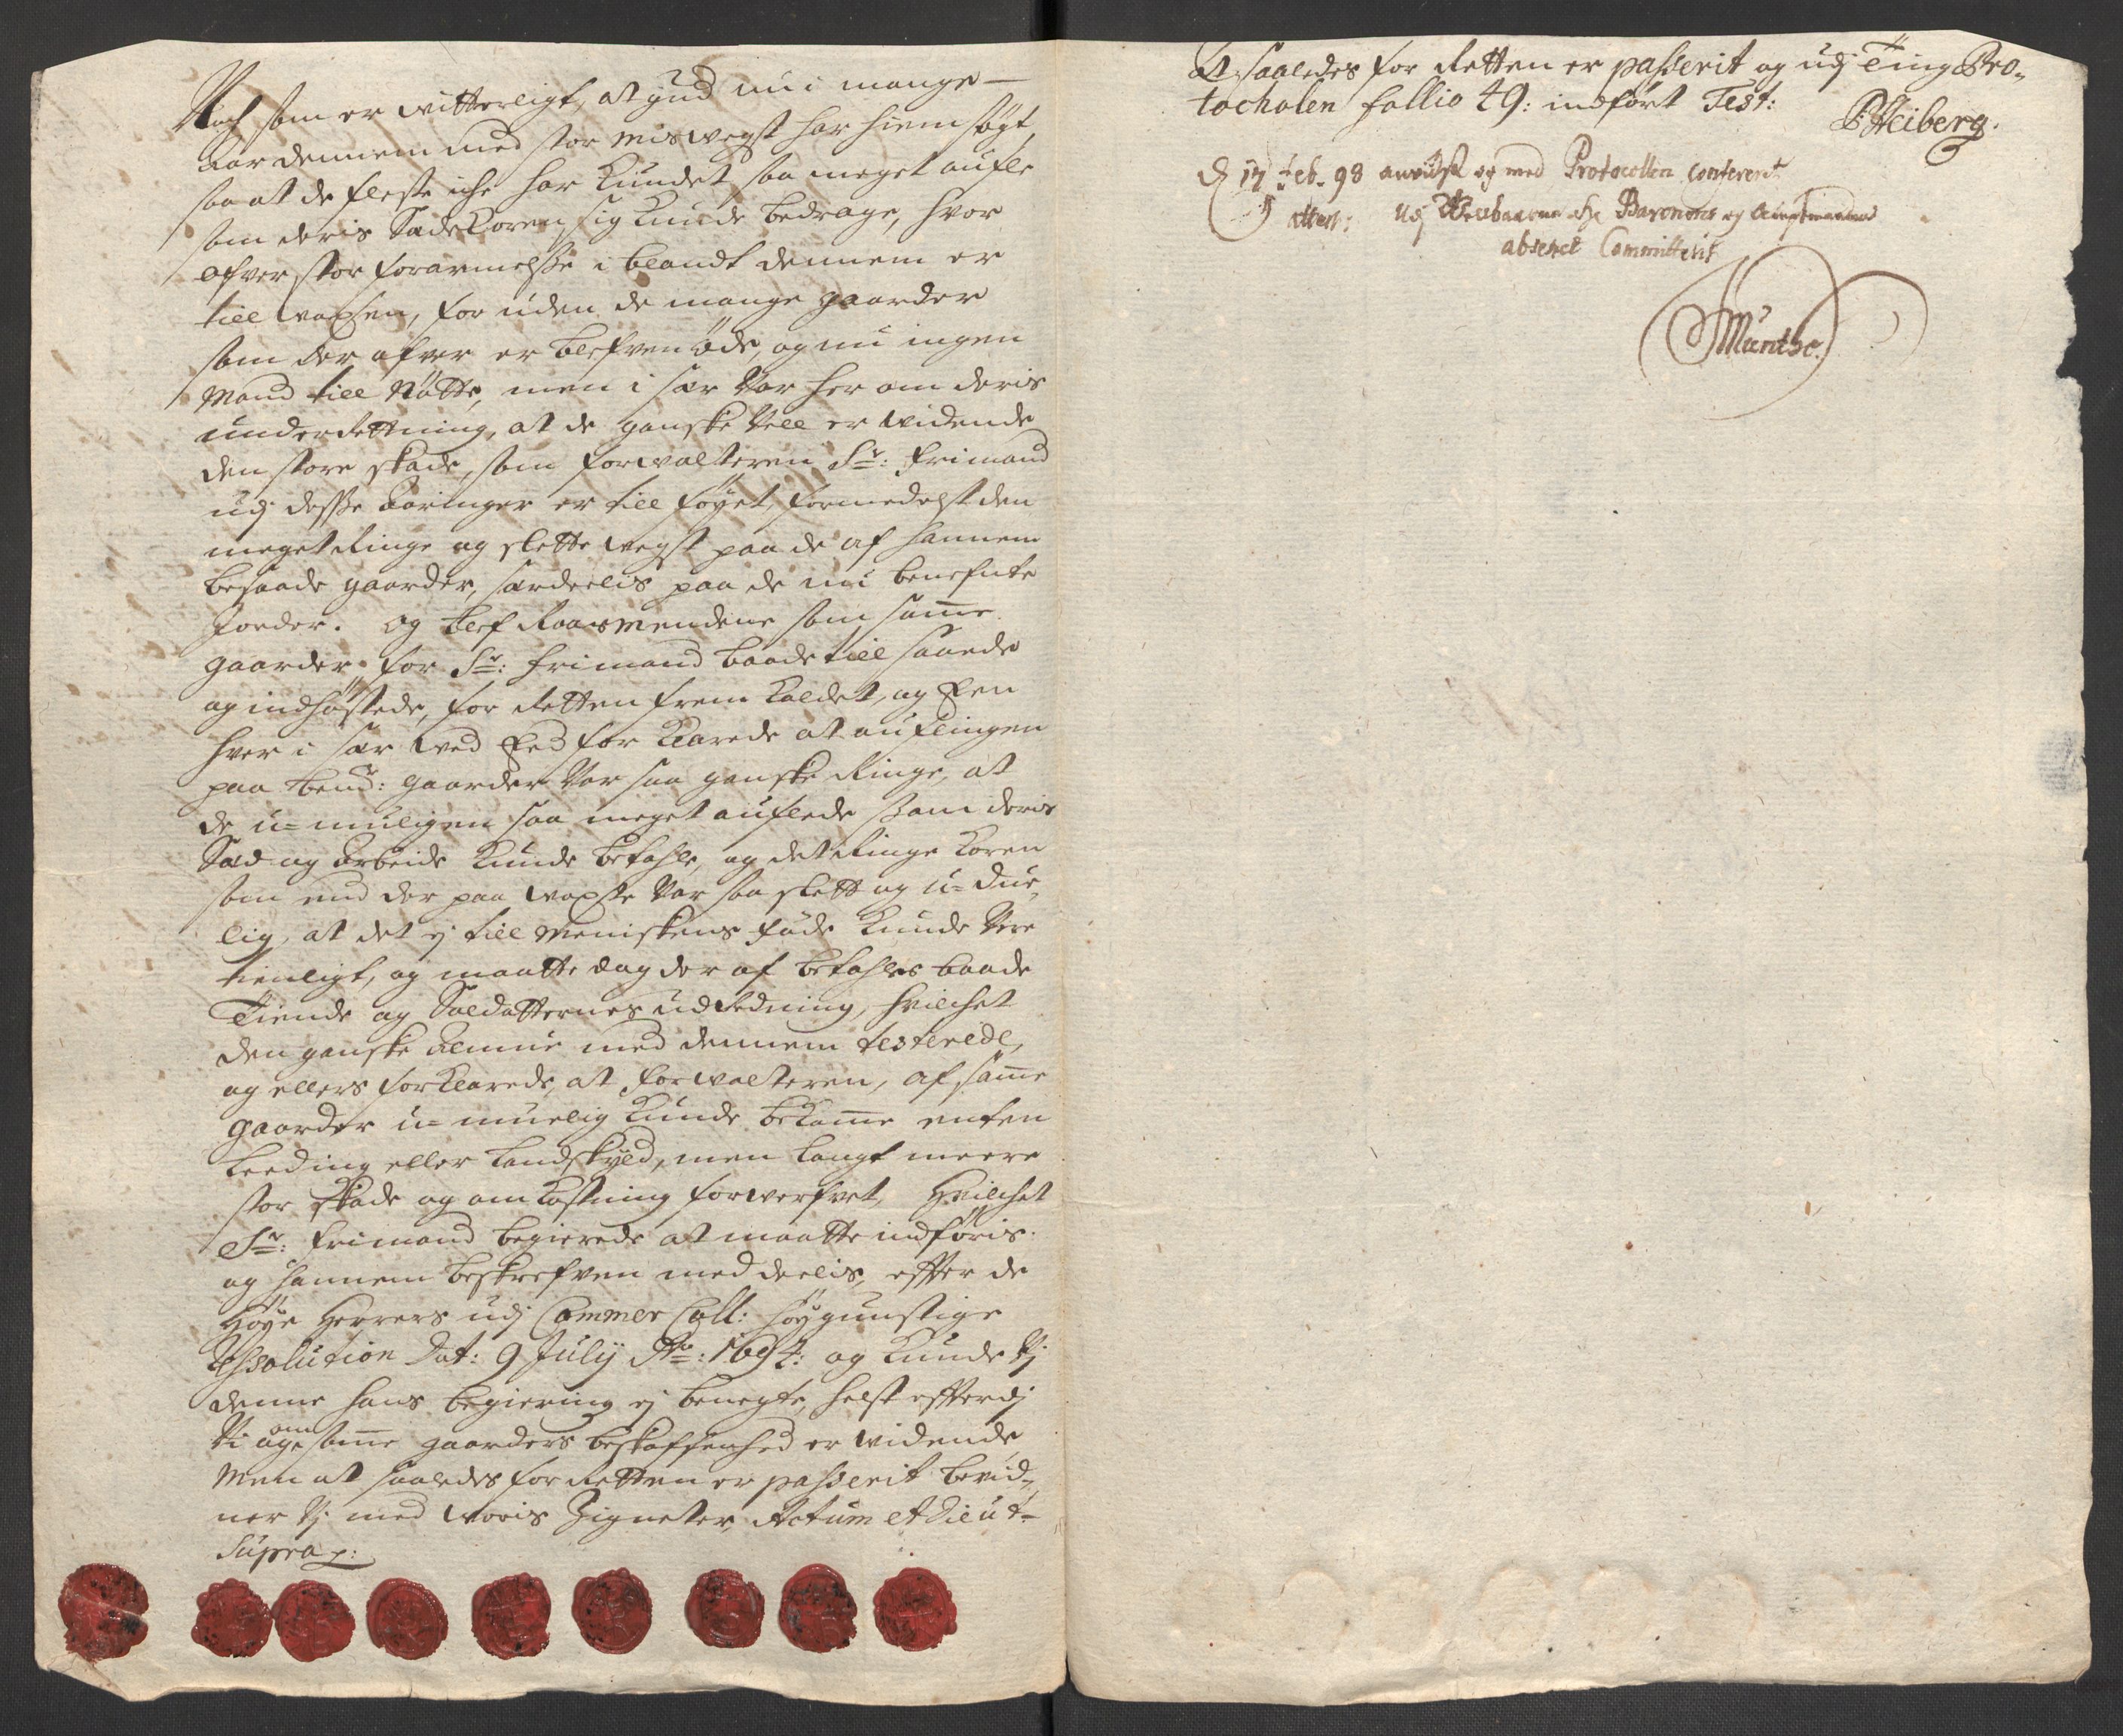 Och som er witterligt, at gud nu i mange
Aar dennem med stor miswegst har hiemsøgt,
saa at de fleste iche har kundet saa meget aufle
som deris Sædekoren sig kunde bedrage, hvor
ofver stor forarmelsse i blandt dennem er
till woxsen, for uden de mange gaarder
som der ofver er blefven øde, og nu ingen
Mand till Nøtte, men i sær var her om deris
underrettning, at de ganske vell er widende
den store skade, som forwalteren Sr: Frimand
udj desse Aaringer er till føyet, formedelst den
meget Ringe og slette wegst paa de af hannem
besaade gaarder, særdeelis paa de nu benefnte
Jorder. Og blef Roarsmendene som same
gaarder for Sr: Frimand baade till saaede
og indhøstede, for Retten frem kaldet, og Een
hver i sær wed Eed for klarede at auflingen
paa bemt: gaarder var saa ganske Ringe, at
de u-muligen saa meget auflede som deris
Sæd og Arbeide kunde betahle, og det Ringe koren
som end der paa woxste var saa slett og u-due-
lig, at det ej till Meniskens føde kunde være
tienligt, og maatte dog der af betahles baade
Tiende og Soldatternes udredning, hvilchet
den ganske Almue med dennem testerede,
og ellers forklarede, at forwalteren, af same
gaarder u-muelig kunde bekome enten
Leeding eller Landskyld, men langt meere
stor skade og omkostning forwerfvet, Hvilchet
Sr: Frimand begierede at maatte indføris
og hannem beskrefven med deelis, effter de
Høye Herrers udj Cammer Coll: høygunstige
Resolution Dat: 9 Julij Ao: 1694: og kunde Vj
denne hans begiering ej benegte, helst effterdj
Vi om same gaarders beskaffenhed er widende,
Men at saaledes for Retten er passerit bevid-
ner Vj med woris Zigneter, Actum et Die ut-
Supra p:
At saaledes for Retten er passerit og udj Ting Pro-
tocholen follio 49: indført Test:
P Heiberg.
D 17 Feb. 98 anviist og med Protocollen Confererit
attest: Udj Welbaarne Hr Baronens og Amptmandens
absence Committerit
Munthe